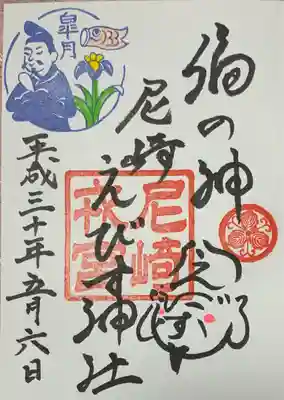 福の神
尼崎えびす神社
平成三十年五月六日
皐月
尼崎